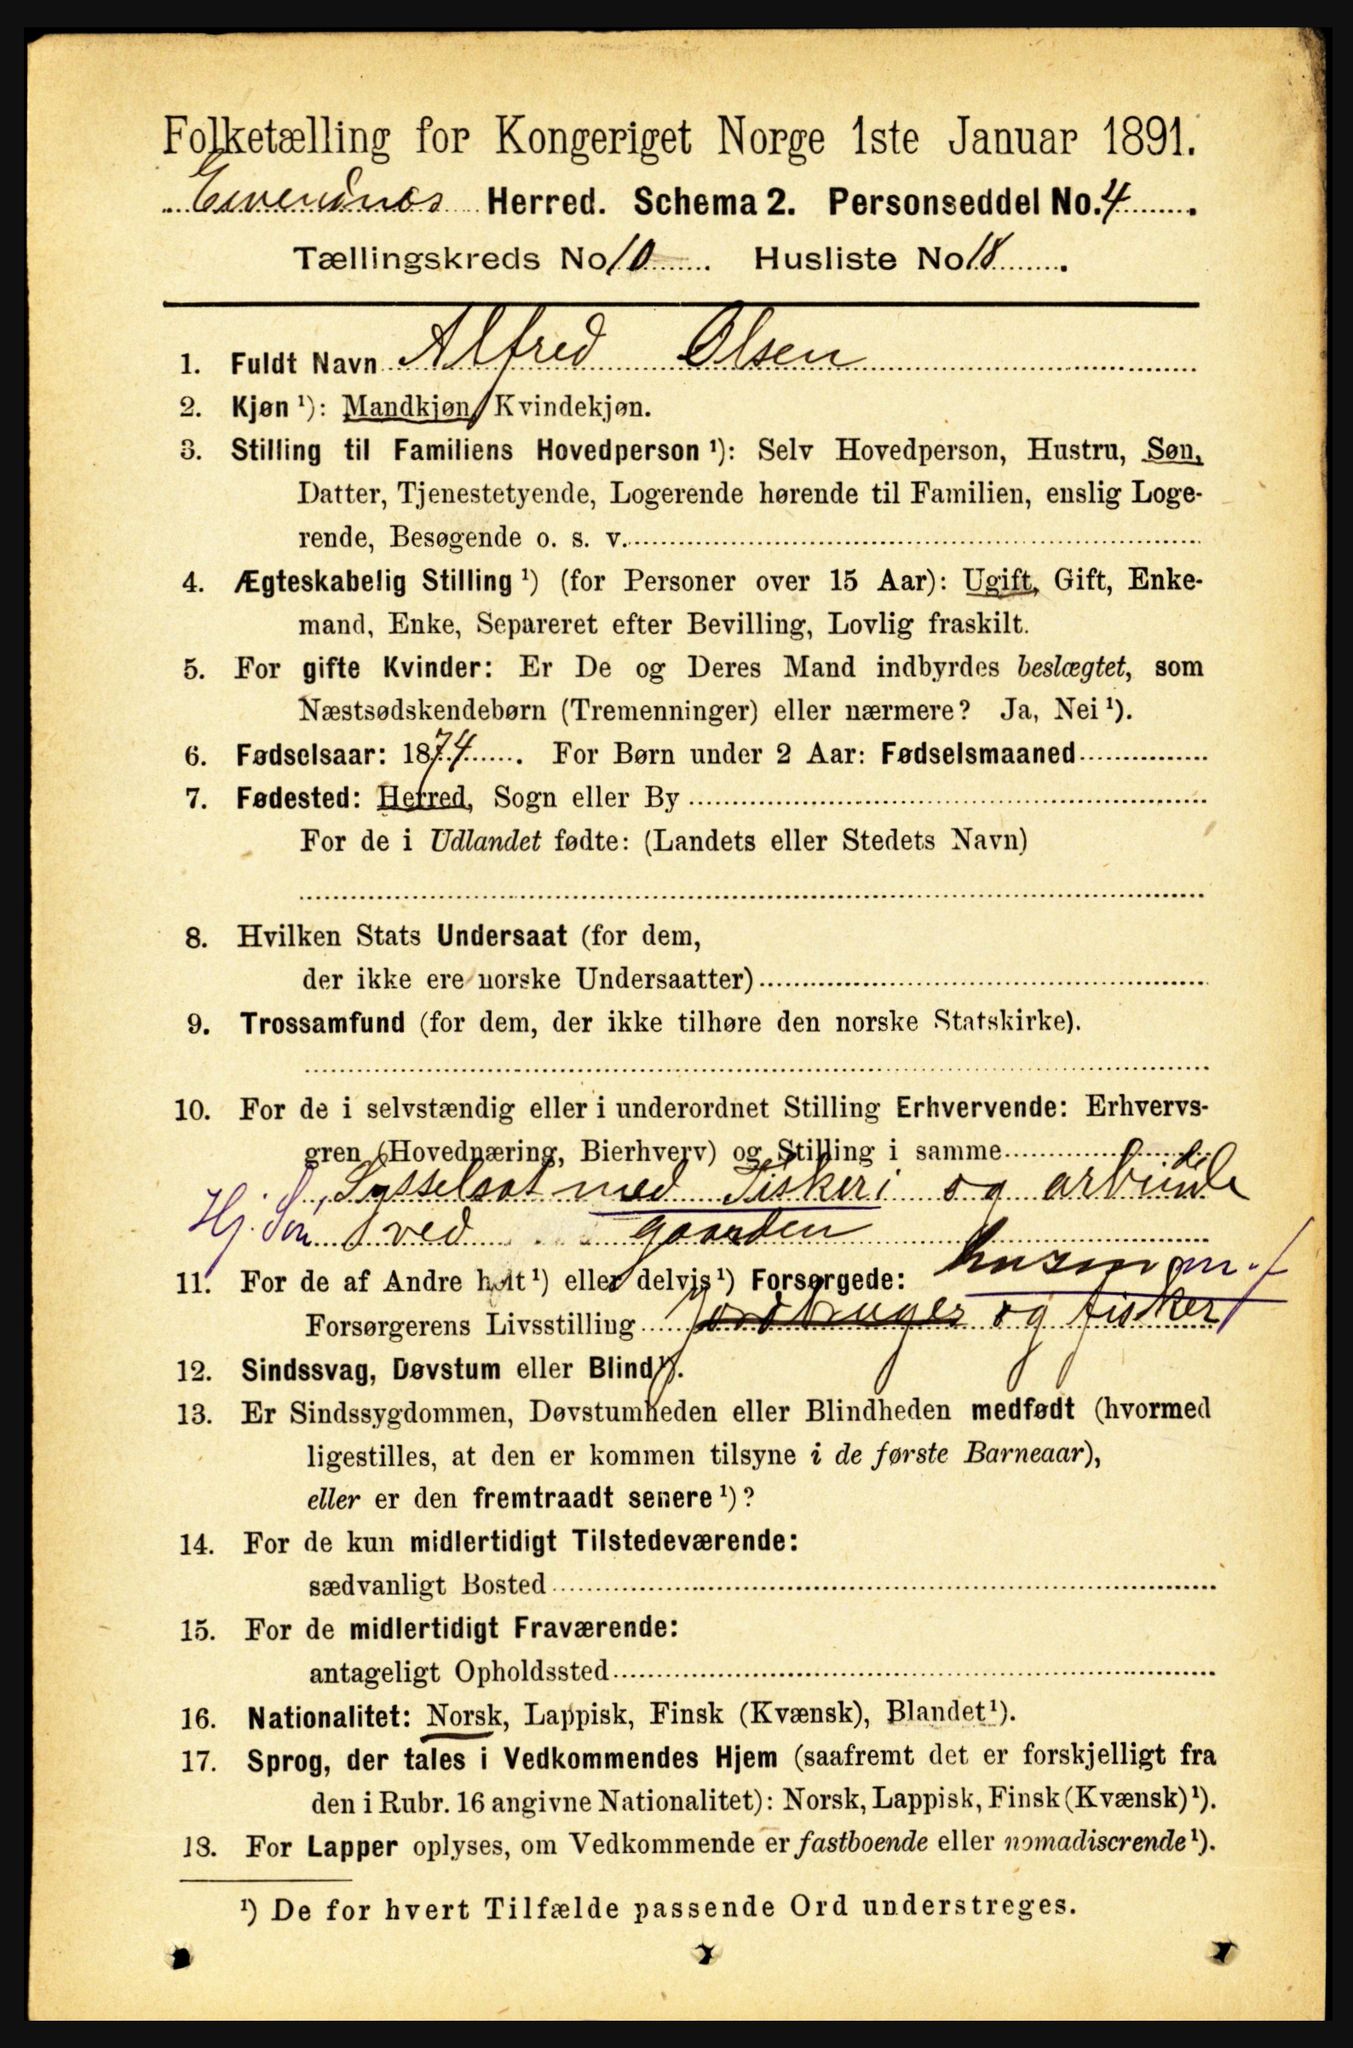 Folketælling for Kongeriget Norge 1ste Januar 1891.
Evendnes Herred. Schema 2. Personseddel No. 4.
Tællingskreds No 10. Husliste No 18.
1. Fuldt Navn Alfred Olsen
2. Kjøn ¹): Mandkjøn, Kvindekjøn.
3. Stilling til Familiens Hovedperson ¹): Selv Hovedperson, Hustru, Søn,
Datter, Tjenestetyende, Logerende hørende til Familien, enslig Loge-
rende, Besøgende o. s. v.
4. Ægteskabelig Stilling ¹) (for Personer over 15 Aar): Ugift, Gift, Enke-
mand, Enke, Separeret efter Bevilling, Lovlig fraskilt.
5. For gifte Kvinder: Er De og Deres Mand indbyrdes beslægtet, som
Næstsødskendebørn (Tremenninger) eller nærmere? Ja, Nei ¹).
6. Fødselsaar: 1874. For Børn under 2 Aar: Fødselsmaaned
7. Fødested: Herred, Sogn eller By
For de i Udlandet fødte: (Landets eller Stedets Navn)
8. Hvilken Stats Undersaat (for dem,
der ikke ere norske Undersaatter)
9. Trossamfund (for dem, der ikke tilhøre den norske Statskirke).
10. For de i selvstændig eller i underordnet Stilling Erhvervende: Erhvervs-
gren (Hovednæring, Bierhverv) og Stilling i samme
Sysselsat med Fiskeri og arbeide
Hj. Søn ved gaarden
11. For de af Andre helt ¹) eller delvis ¹) Forsørgede: husm m. f
Forsørgerens Livsstilling Jordbruger og fisker
12. Sindssvag, Døvstum eller Blind ¹).
13. Er Sindssygdommen, Døvstumheden eller Blindheden medfødt (hvormed
ligestilles, at den er kommen tilsyne i de første Barneaar),
eller er den fremtraadt senere ¹)?
14. For de kun midlertidigt Tilstedeværende:
sædvanligt Bosted
15. For de midlertidigt Fraværende:
antageligt Opholdssted
16. Nationalitet: Norsk, Lappisk, Finsk (Kvænsk), Blandet ¹).
17. Sprog, der tales i Vedkommendes Hjem (saafremt det er forskjelligt fra
den i Rubr. 16 angivne Nationalitet): Norsk, Lappisk, Finsk (Kvænsk) ¹).
18. For Lapper oplyses, om Vedkommende er fastboende eller nomadiserende ¹).
¹) De for hvert Tilfælde passende Ord understreges.